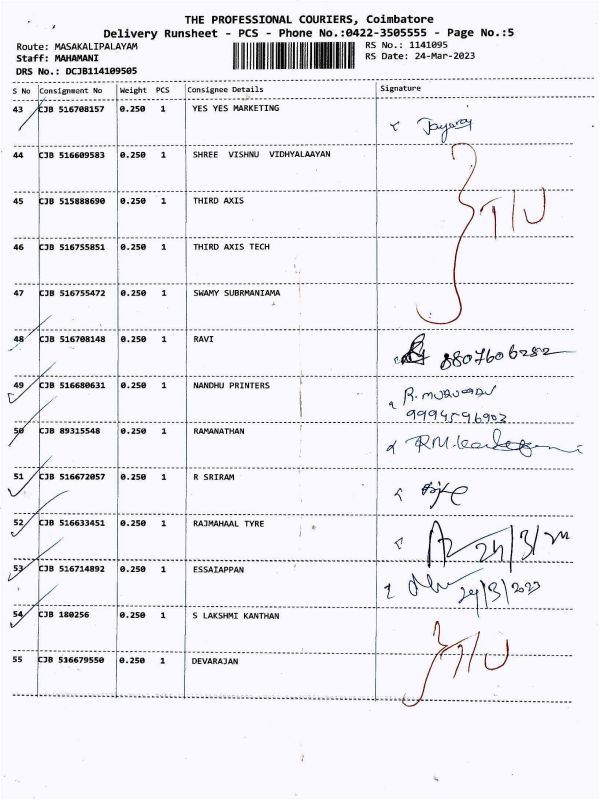 THE PROFESSIONAL COURIERS, Coimbatore
Delivery Runsheet - PCS - Phone No.:0422-3505555 - Page No.:5
Route: MASAKALIPALAYAM RS No.: 1141095
Staff: MAHAMANI RS Date: 24-Mar-2023
DRS No.: DCJB114109505
S No Consignment No Weight PCS Consignee Details Signature
43 CJB 516708157 0.250 1 YES YES MARKETING
44 CJB 516609583 0.250 1 SHREE VISHNU VIDHYALAAYAN
T/U
45 CJB 515888690 0.250 1 THIRD AXIS
46 CJB 516755851 0.250 1 THIRD AXIS TECH
47 CJB 516755472 0.250 1 SWAMY SUBRMANIAMA
48 CJB 516708148 0.250 1 RAVI 8807606282
49 CJB 516680631 0.250 1 NANDHU PRINTERS
9994596902
50 CJB 89315548 0.250 1 RAMANATHAN
51 CJB 516672057 0.250 1 R SRIRAM
52 CJB 516633451 0.250 1 RAJMAHAAL TYRE 24/3/
53 CJB 516714892 0.250 1 ESSAIAPPAN 24/3/2023
54 CJB 180256 0.250 1 S LAKSHMI KANTHAN
T/U
55 CJB 516679550 0.250 1 DEVARAJAN